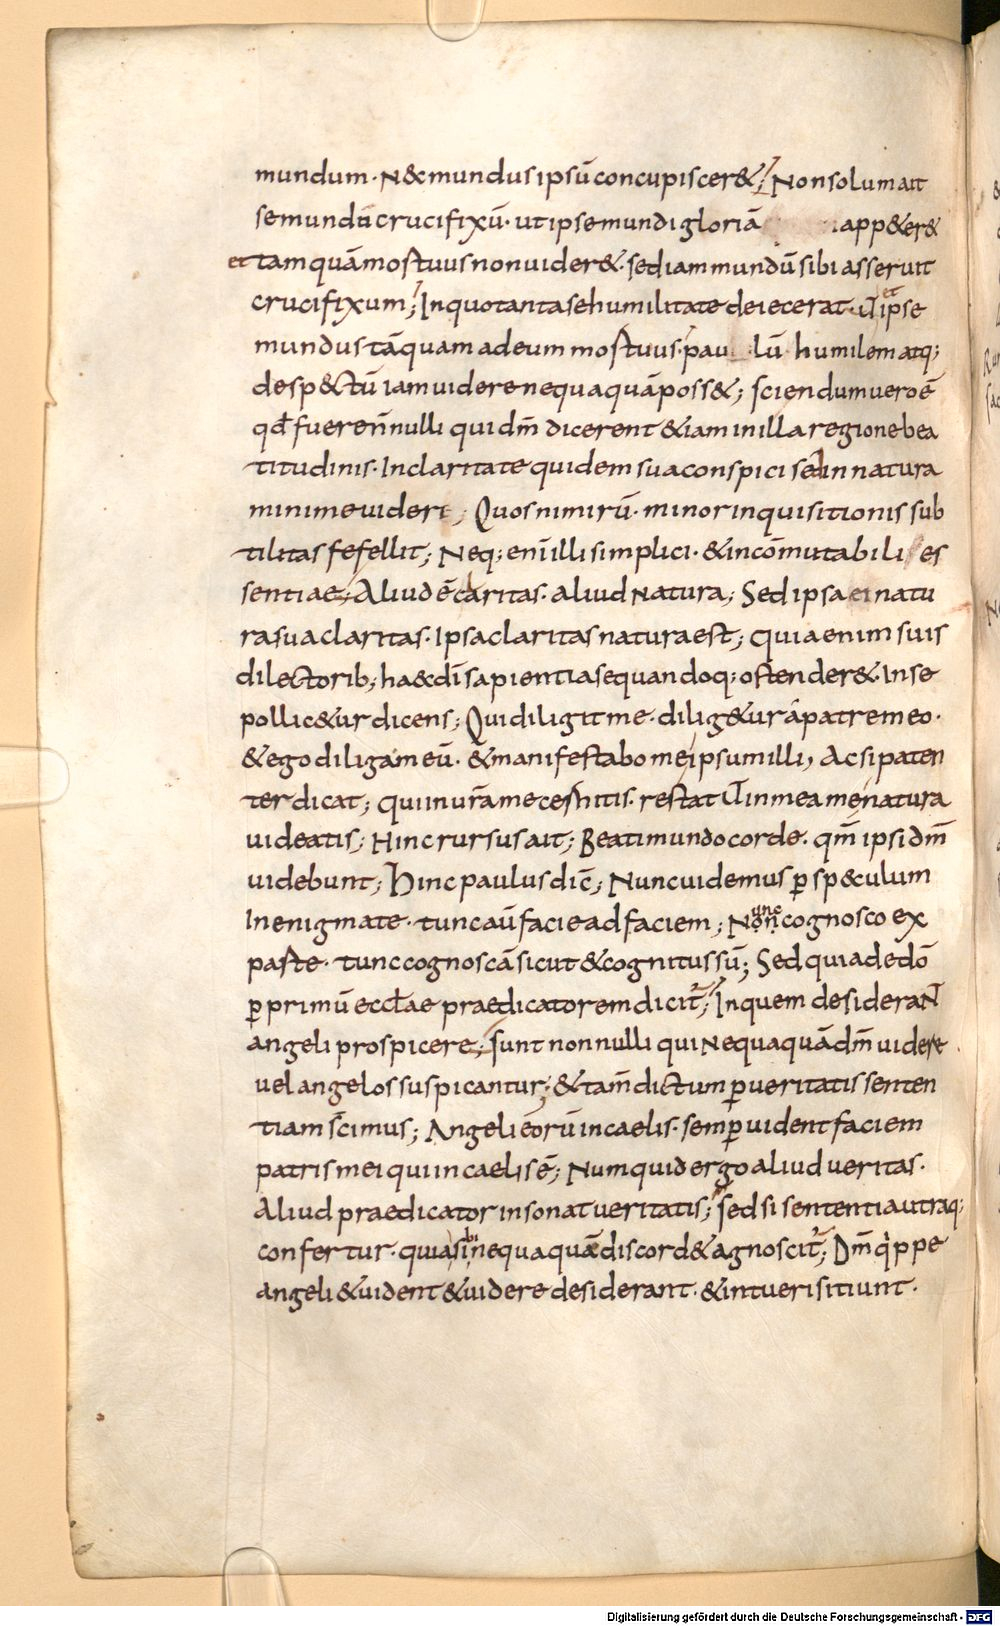 mundum· N& mundus ipsū concupiscer&; Non solum ait
se mundū crucifixū· ut ipse mundi gloriā app&er&
et tamquā mortuus non uider&· sed iam mundū sibi asseruit
crucifixum; In quo tanta se humilitate deiecerat· ut et ipse
mundus tāquam ad eum mortuus· paulū humilem atq;
desp&ctū iam uidere nequaquā poss&; sciendum uero ē
qđ fuereñ nulli qui dm̄ dicerent & iam in illa regione bea
titudinis· In claritate quidem sua conspici sed in natura
minime uideri; Quos nimirū· minor inquisitionis sub
tilitas fefellit; Neq; enī illi simplici· & incōmutabili es
sentiae; Aliud ē caritas· aliud Natura; Sed ipsa ei natu
ra sua claritas· Ipsa claritas natura est; Quia enim suis
dilectorib; ha&c dī sapientia se quandoq; ostender&· In se
pollic&ur dicens; Qui diligit me· dilig&ur a patre meo·
& ego diligam eū· & manifestabo me ipsum illi, Ac si paten
ter dicat; Qui in ur̄a me cernitis· restat ut in mea me natura
uideatis; Hinc rursus ait; Beati mundo corde· qm̄ ipsi dm̄
uidebunt; Hinc paulus dic̄; Nunc uidemus p̱ sp&culum
In enigmate· tunc aū facie ad faciem; Nunc cognosco ex
parte· tunc cognoscā sicut & cognitus sū; Sed quia de dō
p̱ primū eccl̄ae praedicatorem dicit̄; In quem desiderant
angeli prospicere; sunt nonnulli qui Nequaquā dm̄ uidere
uel angelos suspicantur; & tam̄ dictum p̱ ueritatis senten
tiam scimus; Angeli eorū in caelis· semp̱ uident faciem
patris mei qui in caelis ē; Numquid ergo aliud ueritas·
Aliud praedicator insonat ueritatis; sed si sententia utraq;
confertur· quia sibi nequaquā discord& agnoscit̄; Dm̄ qippe
angeli & uident & uidere desiderant· & intueri sitiunt·
Digitalisierung gefördert durch die Deutsche Forschungsgemeinschaft - DFG